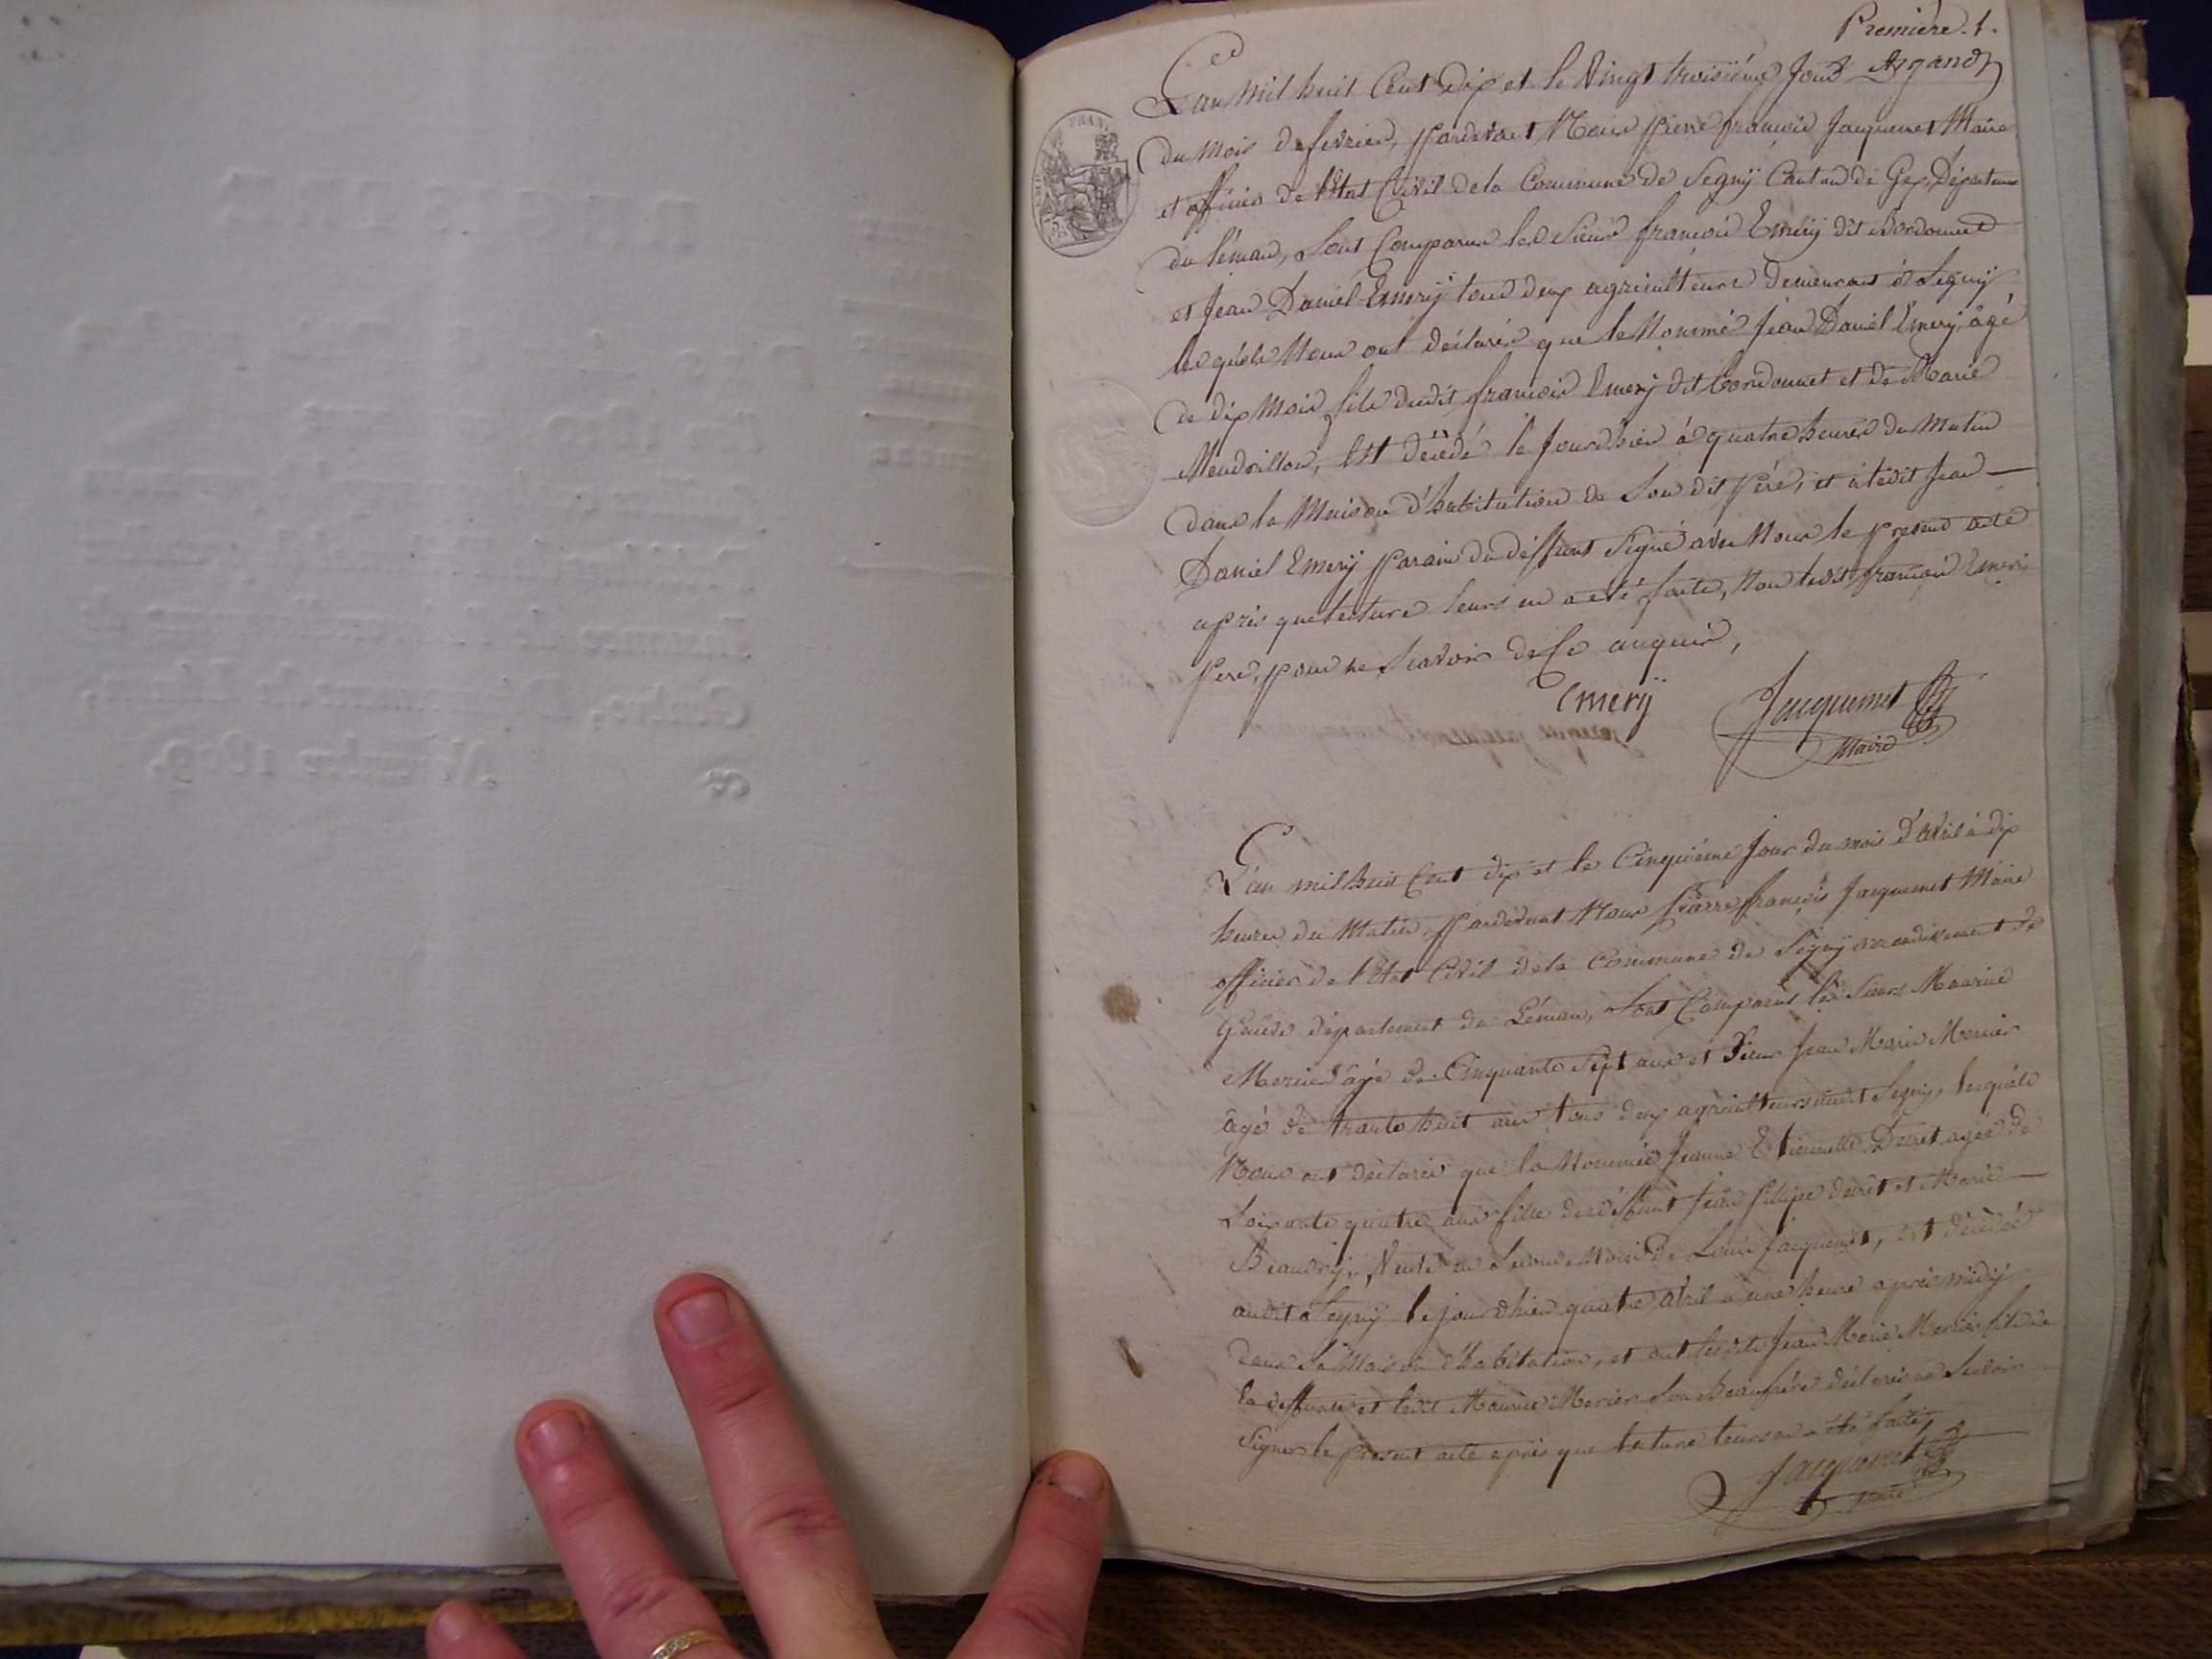 Première. 1.
Argand
L'an mil huit Cent dix et le vingt troisiéme Jour
du mois de fevrier, pardevant Nous pierre françois Jacquemet Maire
et officier de l'Etat Civil dela Commune de Segnÿ Canton de Gex, Département
du léman, sont Comparus les sieurs françois Emerÿ dit Cordonnet
et Jean Daniel Emerÿ tous deux agriculteurs demeurant à Segnÿ
les quels Nous ont déclarés que le Nommé Jean Daniel Emerÿ âgé
de dix Mois fils dudit françois Emerÿ dit Cordonnet et de Marie
Mendrillon, Est décédé le Jourdhier à quatre heures du Matin
dans la Maison d'habitation de Son dit Péré, et à ledit Jean
Daniel Emerÿ Parain du déffunt Signé avec Nous le present acte
aprés que lecture leurs en a eté faite, Non ledit françois Emerÿ
Pere, pour ne Scavoir de Ce enquis,
Emerÿ Jacquemet
Maire
L'an mil huit Cent dix et le Cinquiéme Jour du mois d'avril à dix
heures du Matin, Pardevant Nous pierre françois Jacquemet Maire
officier de l'Etat Civil dela Commune de Segnÿ arrondissement de
département du Léman, Sont Comparus les Sieurs Maurice
Mercier âgé de Cinquante Sept ans et Sieur Jean Marie Mercier
âgé de trante huit ans tous deux agriculteurs Segnÿ, lesquels
Nous ont déclarés que la Nommée Jeanne Etiennette Decret agée de
Soixante quatre ans fille de deffunt Jean fillipe decret et Marie
Beaudrÿ, Veuve en Second de Louis Jacquemet, est décédée
audit Segnÿ le jour dhier quatre avril à une heure aprés midÿ
dans Sa Maison d'habitation, et ont lesdits Jean Marie Mercier fils de
la deffunte et ledit Maurice Mercier Son Beaufrére déclarés ne Scavoir
Signer le present acte aprés que lecture leurs en a été faite,
Jacquemet
Maire